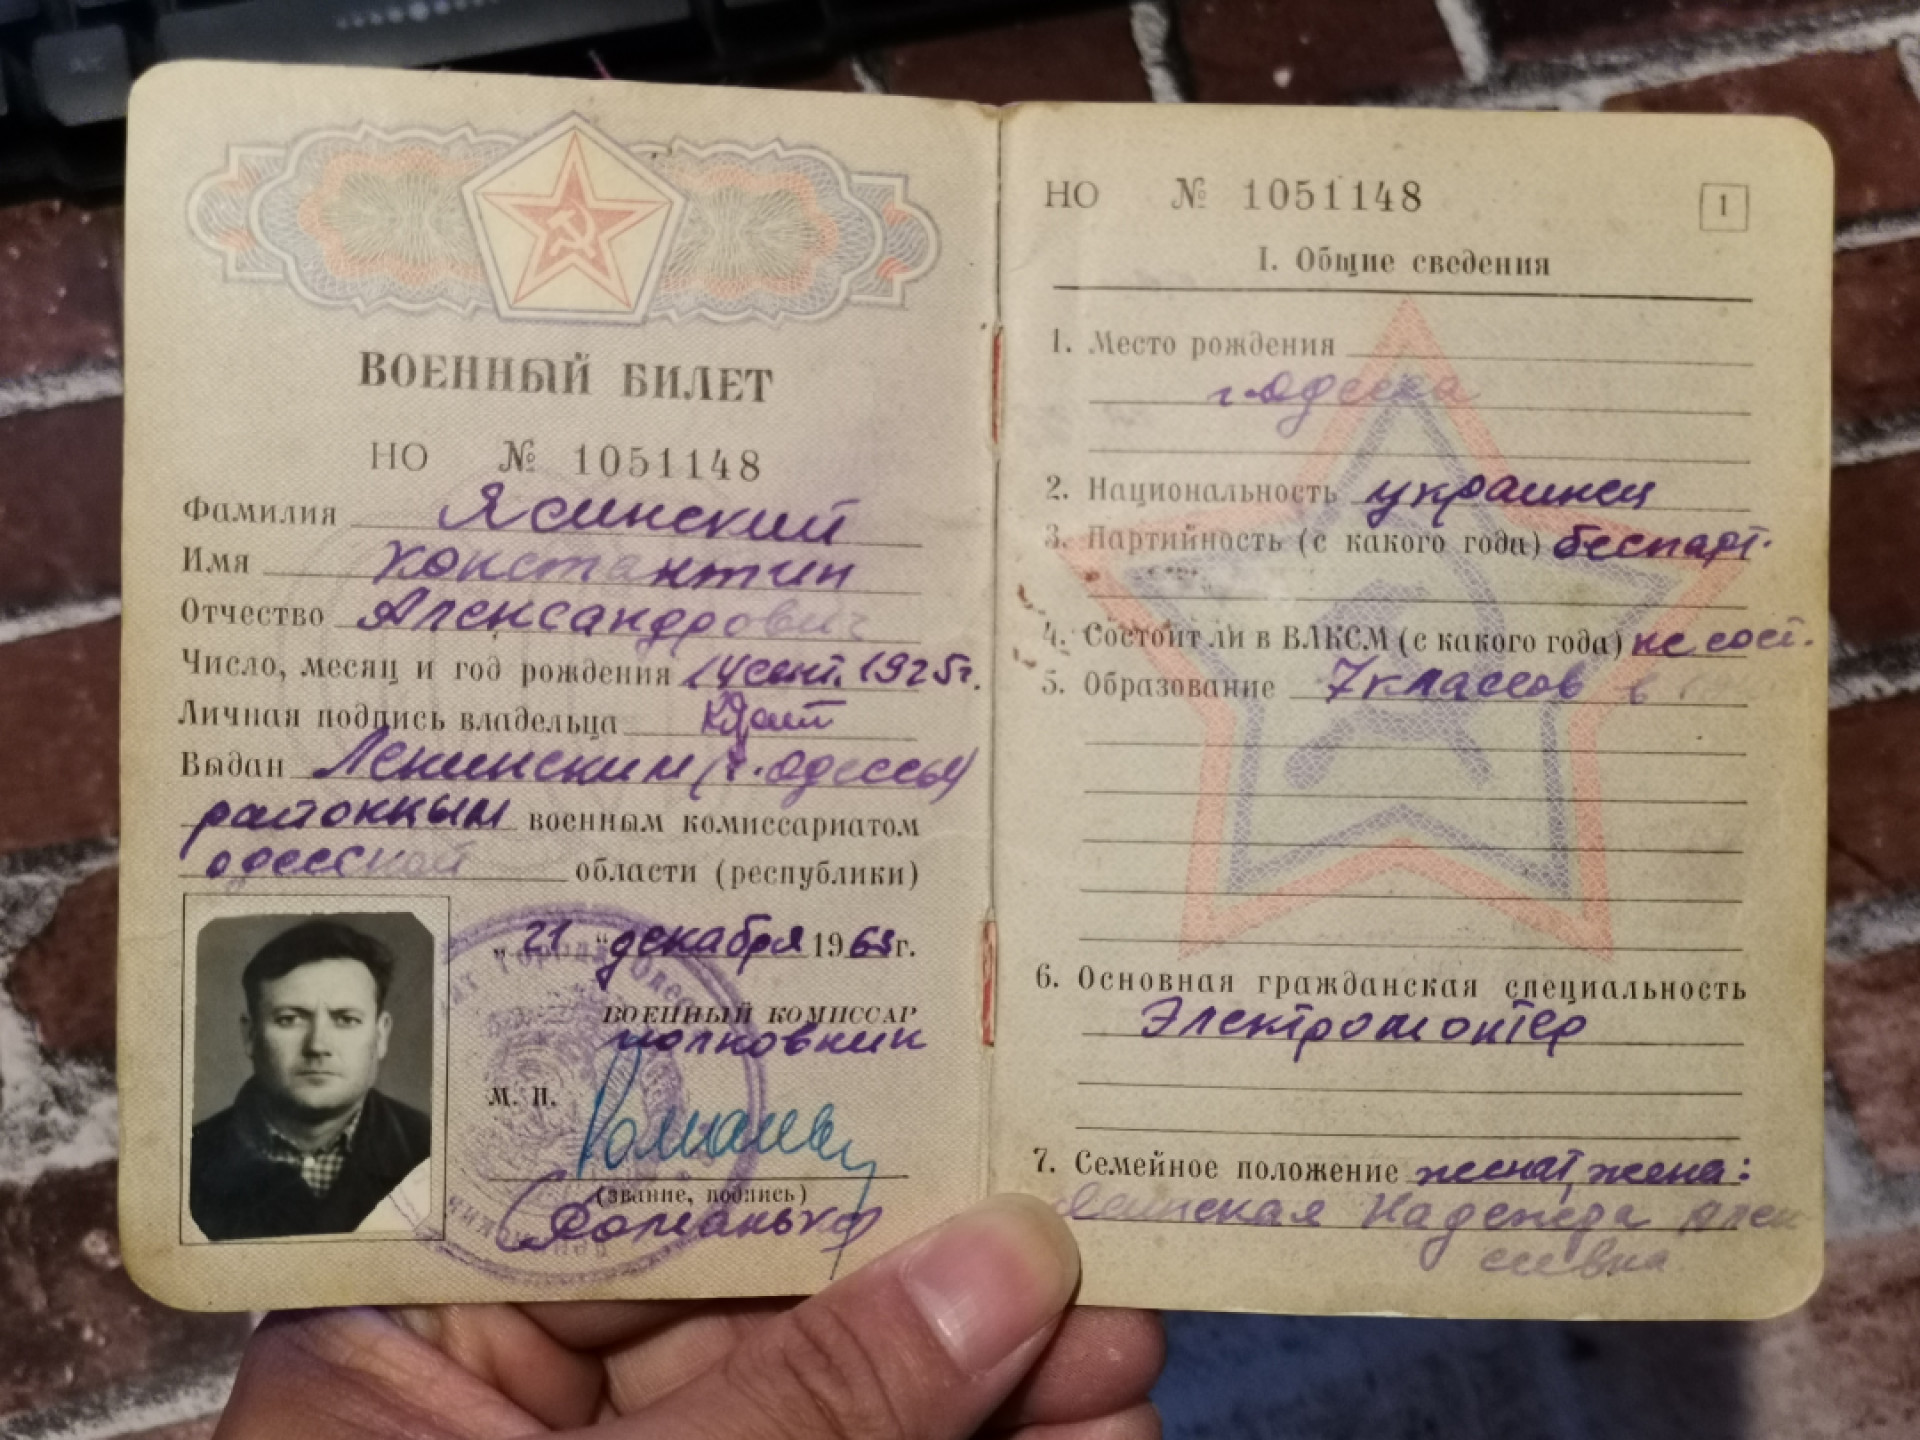 ВОЕННЫЙ БИЛЕТ
НО № 1051148
Фамилия Ясинский
Имя Константин
Отчество Александрович
Число, месяц и год рождения 14 сент. 1925г.
Личная подпись владельца
Выдан Ленинским (г. Одессы)
районным военным комиссариатом
одесской области (республики)
„21“ декабря 1963г.
ВОЕННЫЙ КОМИССАР
полковник
М. П.
(звание, подпись)
НО № 1051148
1
I. Общие сведения
1. Место рождения
г. Одесса
2. Национальность украинец
3. Партийность (с какого года) беспарт.
4. Состоит ли в ВЛКСМ (с какого года) не сост.
5. Образование 7 классов в
6. Основная гражданская специальность
Электромонтер
7. Семейное положение женат, жена:
Ясинская Надежда Алек
сеевна